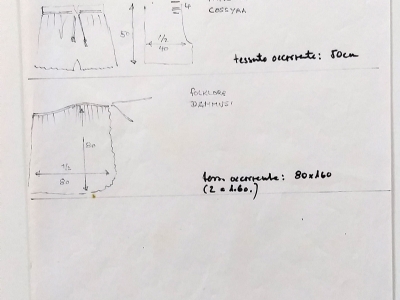 COSSYRA
4
50
1/2
40
tessuto occorrente: 50cm
FOLKLORE
DAMMUSI
50
1/2
80
occorrente: 80x160
(2 = 1.60.)